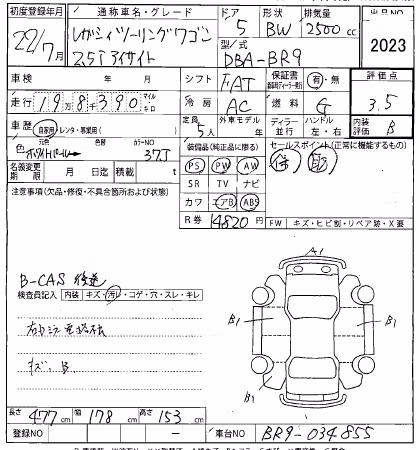 初度登録年月 通称車名・グレード ドア 形状 排気量 出品NO
22/7月 レガシィツーリングワゴン 5 BW 2500cc
2.5i アイサイト 型/式 DBA-BR9 2023
車検 年 月 シフト FAT 保証書 有・無 評価点
走行 19万8千390 マイル キロ 冷房 AC 燃料 G 3.5
車歴 自家用 レンタ・事業用( ) 定員 5人 外車モデル 年 ディーラー 並行 ハンドル 左・右 内装評価 B
色 元色 色替 カラーNO 37J
装備品(純正品に限る) セールスポイント(正常に機能するもの)
名義変更期限 月 日迄 積載 t PS PW AW
注意事項(欠品・修復・不具合箇所および状態) SR TV ナビ
カワ エアB ABS
R券 14820円 FW キズ・ヒビ割・リペア跡・X要
B-CAS 後送
検査員記入 内装 キズ・汚レ・コゲ・穴・スレ・キレ
A1
B1 B1
B1
キズ、B
長さ 477cm 幅 178cm 高さ 153cm
登録NO － 車台NO BR9-034855